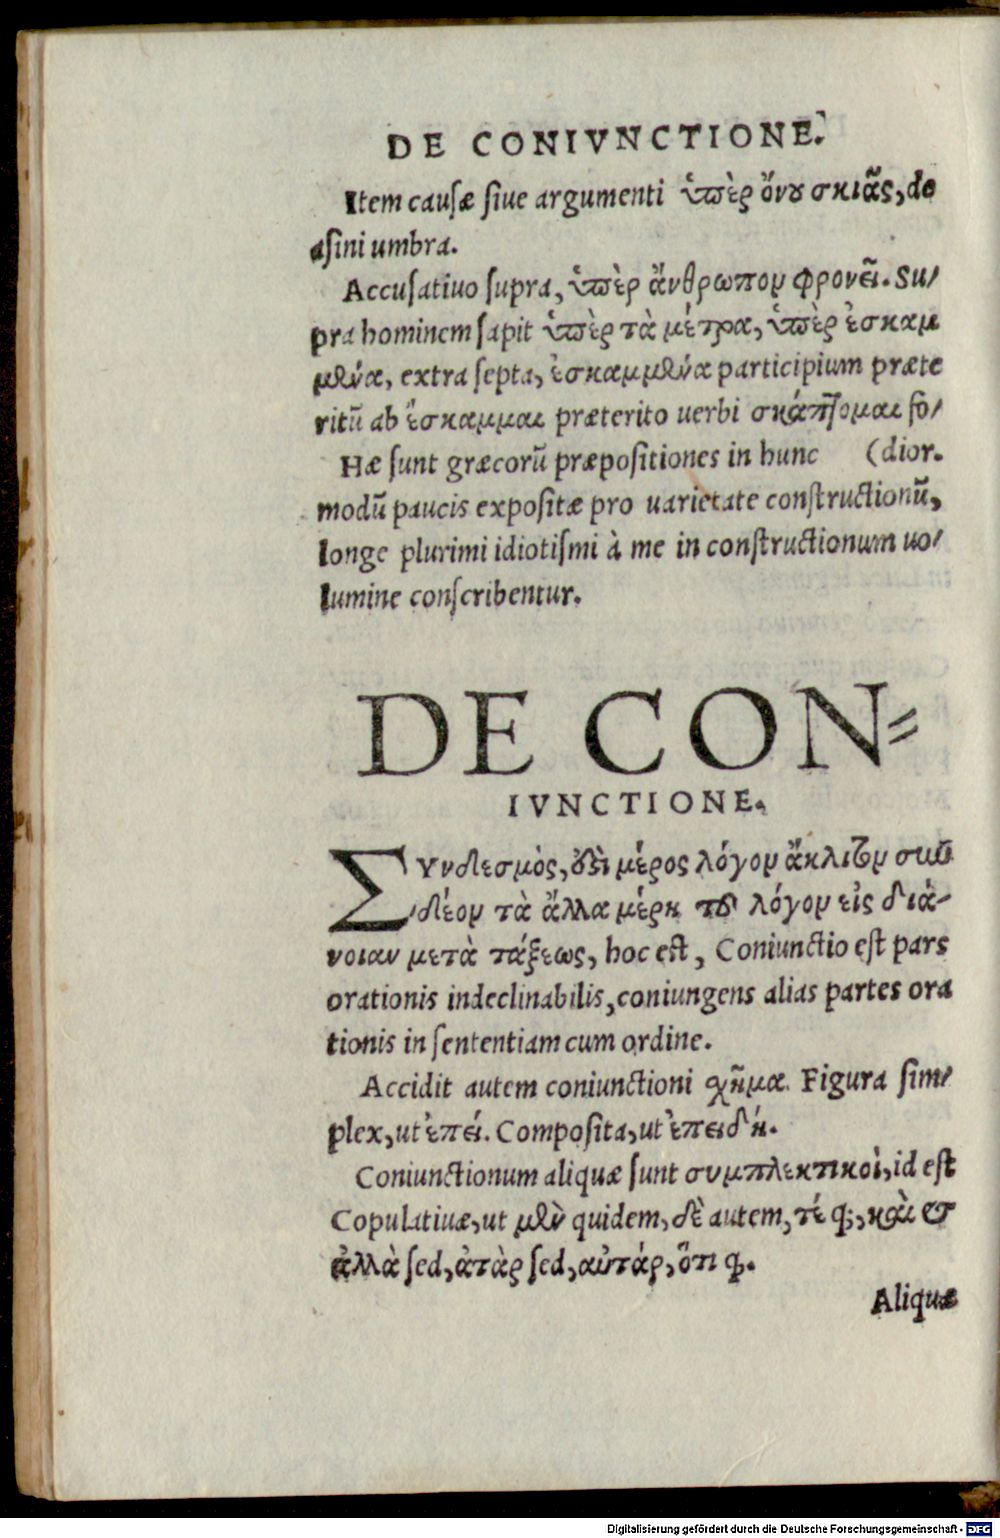 DE CONIVNCTIONE.
Item causæ siue argumenti ὑπὲρ ὄνου σκιᾶς, de
asini umbra.
Accusatiuo supra, ὑπὲρ ἄνθρωπον φρονεῖ. Su/
pra hominem sapit ὑπὲρ τὰ μέτρα, ὑπὲρ ἐσκαμ
μένα, extra septa, ἐσκαμμένα participium præte
ritũ ab ἔσκαμμαι præterito uerbi σκάπτομαι fo/
Hæ sunt græcorũ præpositiones in hunc (dior.
modũ paucis expositæ pro uarietate constructionũ,
longe plurimi idiotismi à me in constructionum uo/
lumine conscribentur.
DE CON=
IVNCTIONE.
ΣΥνδεσμὸς, ὅδὶ μέρος λόγου ἄκλιτον συν
δέον τὰ ἄλλα μέρη τοῦ λόγου εἰς διά-
νοιαν μετὰ τάξεως, hoc est, Coniunctio est pars
orationis indeclinabilis, coniungens alias partes ora
tionis in sententiam cum ordine.
Accidit autem coniunctioni σχῆμα. Figura sim/
plex, ut ἐπεί. Composita, ut ἐπειδή.
Coniunctionum aliquæ sunt συμπλεκτικοὶ, id est
Copulatiuæ, ut μὲν quidem, δὲ autem, τέ q;, καὶ &
ἀλλὰ sed, ἀτὰρ sed, αὐτάρ, ὅτι ꝙ.
Aliquæ
Digitalisierung gefördert durch die Deutsche Forschungsgemeinschaft - DFG